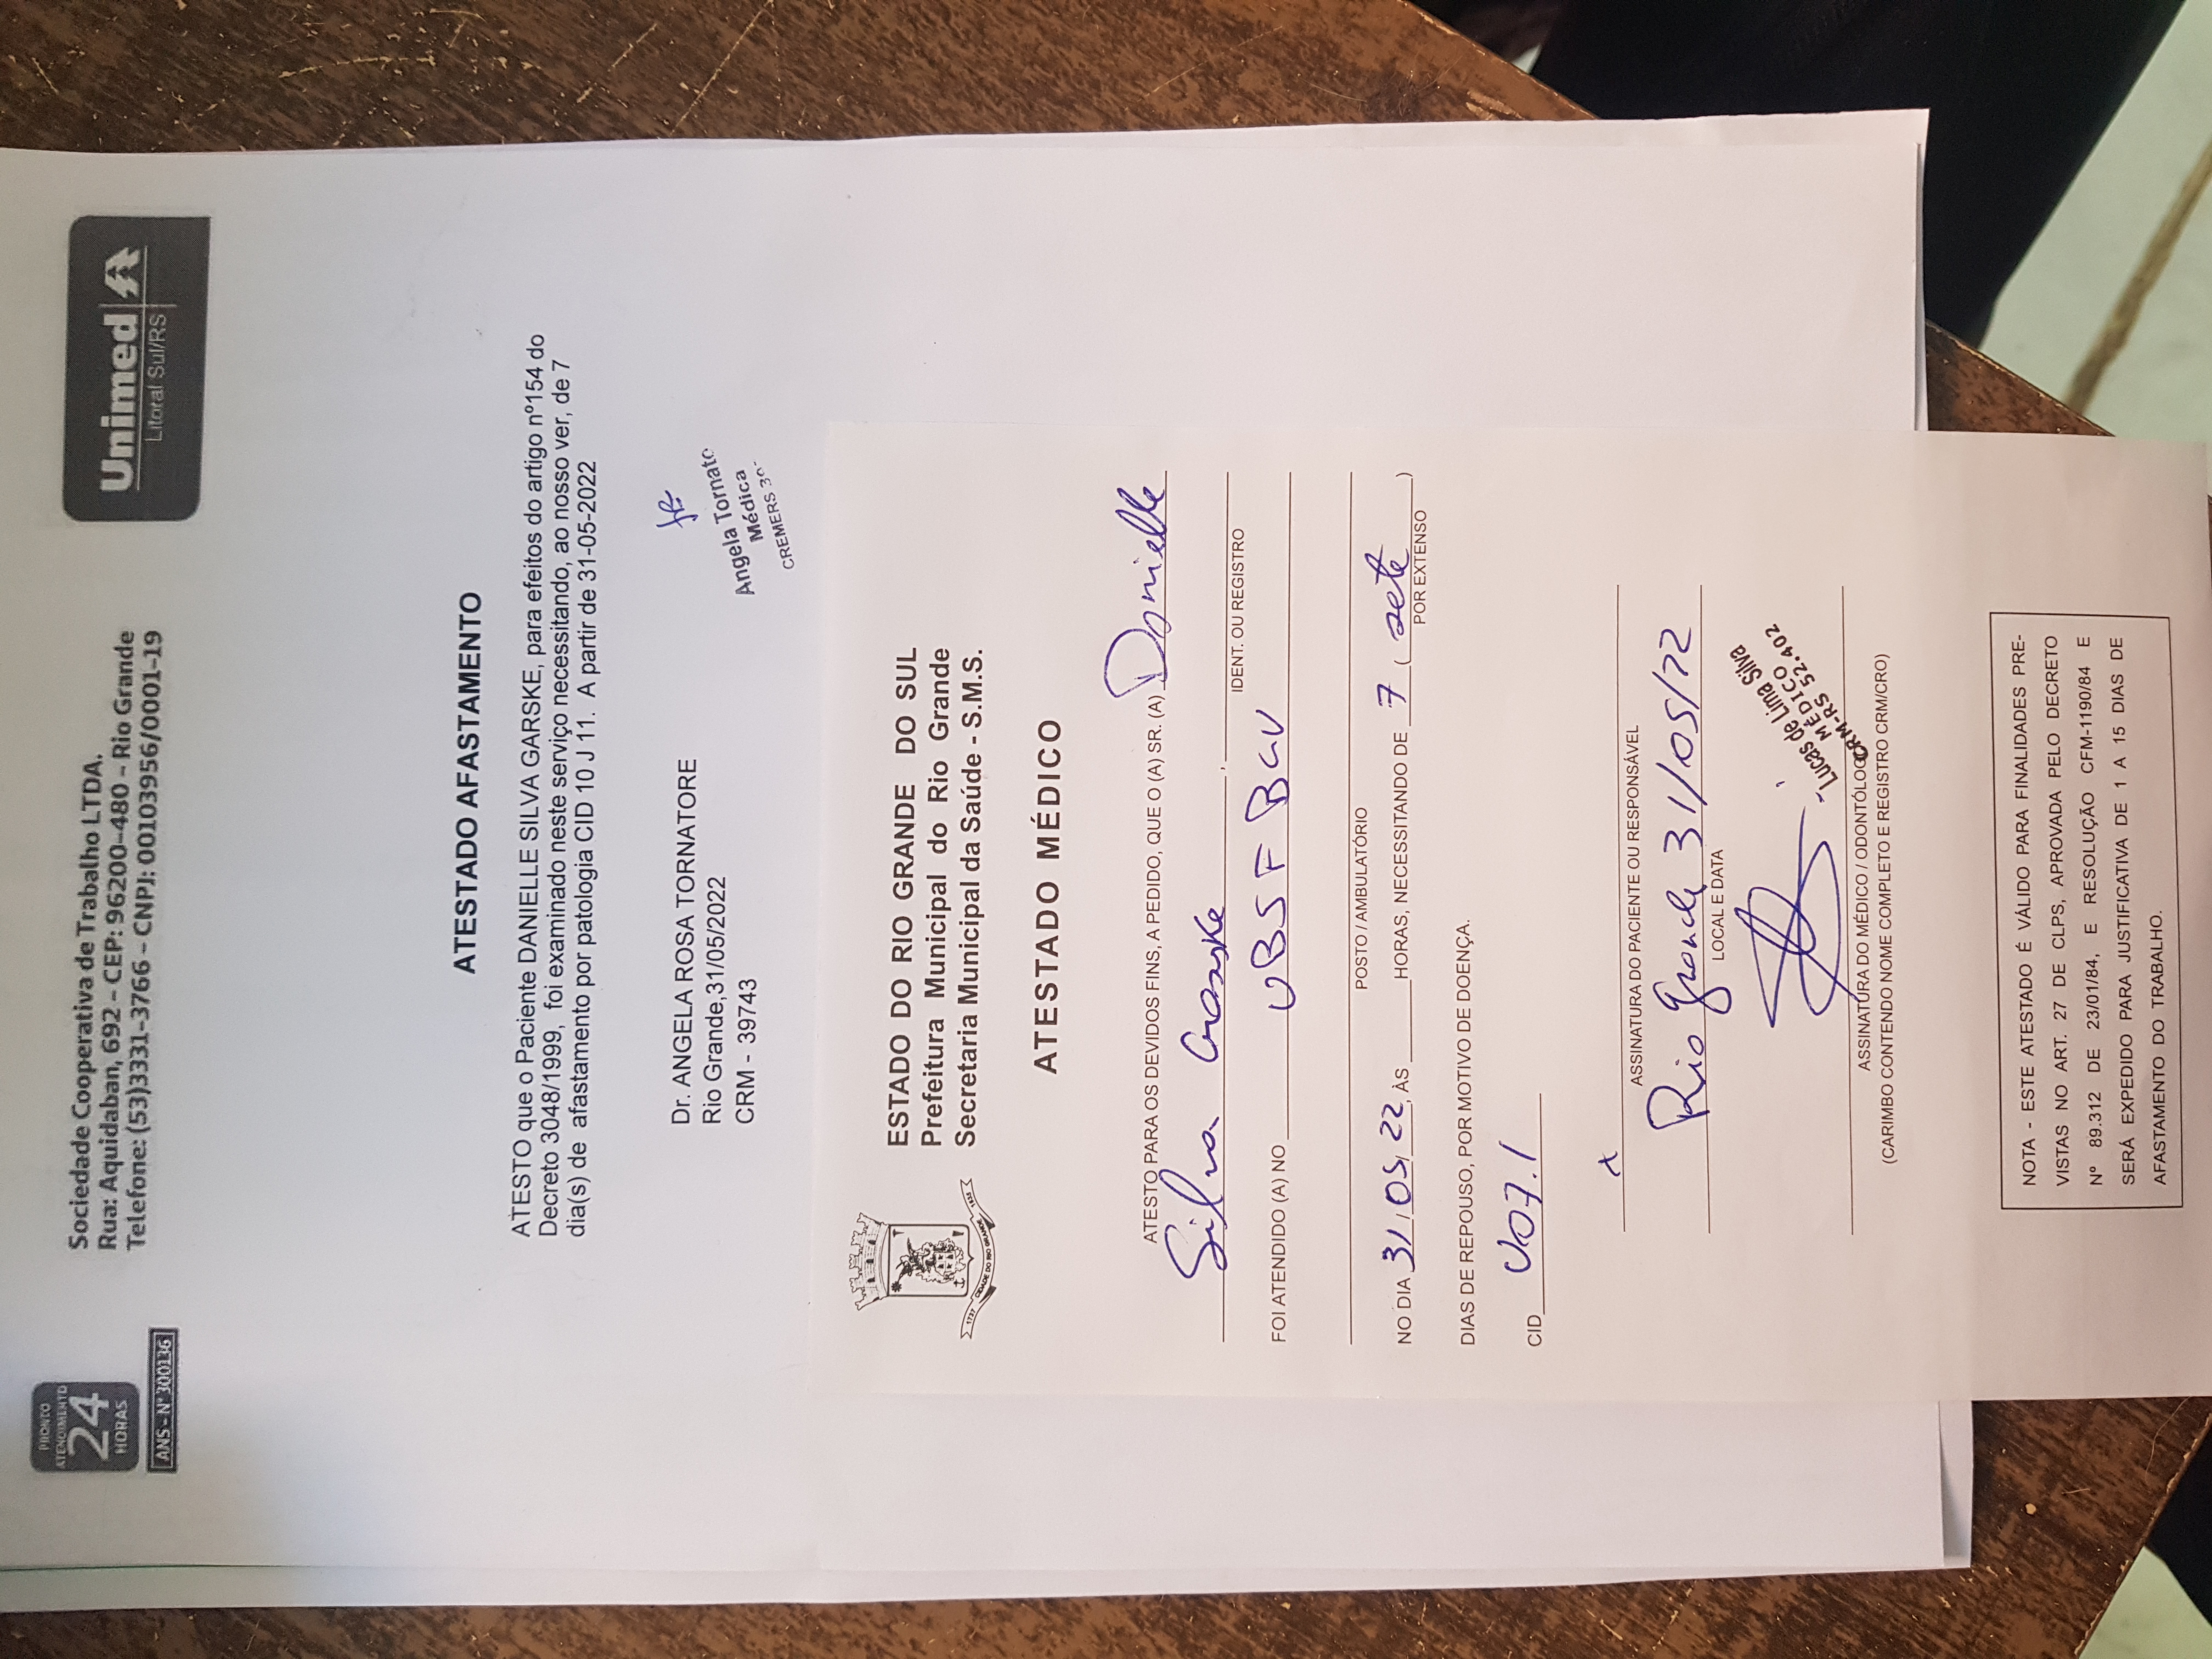 PRONTO
ATENDIMENTO
24
HORAS
ANS - Nº 300136
Sociedade Cooperativa de Trabalho LTDA.
Rua: Aquidaban, 692 - CEP: 96200-480 - Rio Grande
Telefone: (53)3331-3766 - CNPJ: 00103956/0001-19
Unimed
Litoral Sul/RS
ATESTADO AFASTAMENTO
ATESTO que o Paciente DANIELLE SILVA GARSKE, para efeitos do artigo nº154 do
Decreto 3048/1999, foi examinado neste serviço necessitando, ao nosso ver, de 7
dia(s) de afastamento por patologia CID 10 J 11. A partir de 31-05-2022
Dr. ANGELA ROSA TORNATORE
Rio Grande,31/05/2022
CRM - 39743
Angela Tornato
Médica
CREMERS
ESTADO DO RIO GRANDE DO SUL
Prefeitura Municipal do Rio Grande
Secretaria Municipal da Saúde - S.M.S.
1737 CIDADE DO RIO GRANDE 1835
ATESTADO MÉDICO
ATESTO PARA OS DEVIDOS FINS, A PEDIDO, QUE O (A) SR. (A) Danielle
Silva Garske ,
IDENT. OU REGISTRO
FOI ATENDIDO (A) NO UBSF BGV
POSTO / AMBULATÓRIO
NO DIA 31/05/22, ÀS HORAS, NECESSITANDO DE 7 ( sete )
POR EXTENSO
DIAS DE REPOUSO, POR MOTIVO DE DOENÇA.
CID U07.1
x
ASSINATURA DO PACIENTE OU RESPONSÁVEL
Rio Grande 31/05/22
LOCAL E DATA
Lucas de Lima Silva
MÉDICO
CRM-RS 52.402
ASSINATURA DO MÉDICO / ODONTÓLOGO
(CARIMBO CONTENDO NOME COMPLETO E REGISTRO CRM/CRO)
NOTA - ESTE ATESTADO É VÁLIDO PARA FINALIDADES PRE-
VISTAS NO ART. 27 DE CLPS, APROVADA PELO DECRETO
Nº 89.312 DE 23/01/84, E RESOLUÇÃO CFM-1190/84 E
SERÁ EXPEDIDO PARA JUSTIFICATIVA DE 1 A 15 DIAS DE
AFASTAMENTO DO TRABALHO.